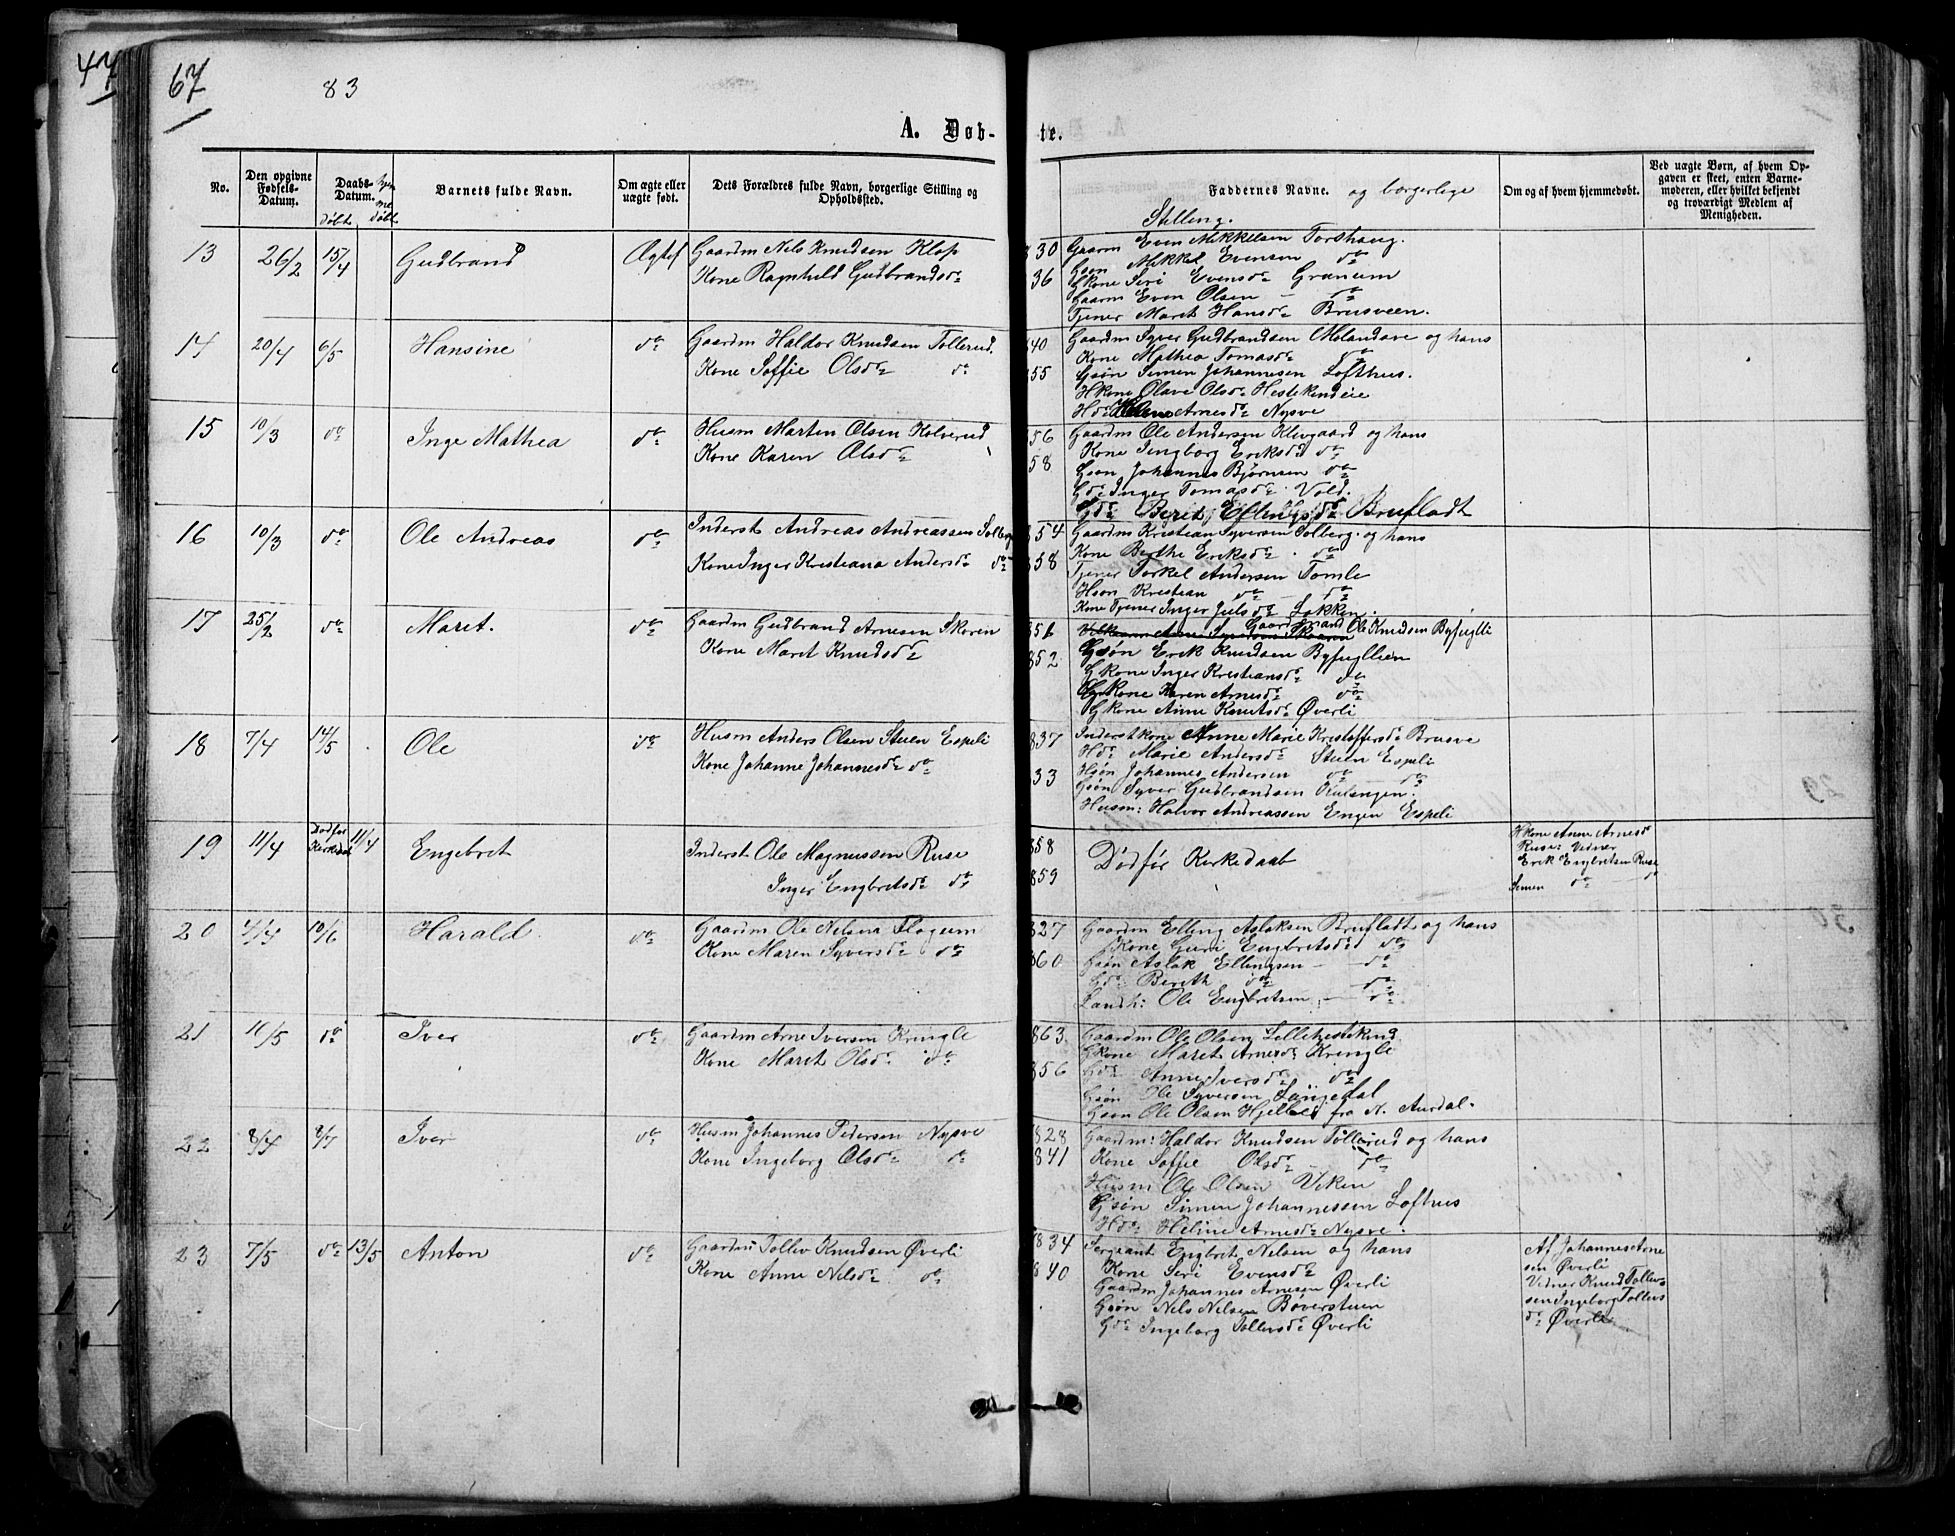 47
67
83
A. Døb-
te.
No.
Den opgivne Fødsels-Datum.
Daabs-Datum.
døbt
Hjem me døbt
Barnets fulde Navn.
Om ægte eller uægte født.
Dets Forældres fulde Navn, borgerlige Stilling og Opholdssted.
Faddernes Navne. og borgerlige
Stilling.
Om og af hvem hjemmedøbt.
Ved uægte Børn, af hvem Op-
gaven er skeet, enten Barne-
moderen, eller hvilket bekjendt
og troværdigt Medlem af
Menigheden.
13 26/2 15/4 Gudbrand Ægtef Gaardm Nils Knudsen Klop
Kone Ragnhild Gudbrandsdr
830
36
Gaarm Even Mikkelsen Torshaug.
Gsøn Mikkel Evensen do
Gkone Siri Evensdr Granum
Gaarm Even Olsen — do
Tjener Marit Hansdr Brusveen.
14 20/4 6/5 Hansine do Gaardm Haldor Knudsen Tollerud.
Kone Soffie Olsdr do
840
855
Gaardm Syver Gudbrandsen Molandave og hans
Kone Mathea Tomasdr do
Gsøn Simen Johannesen Lofthus.
Hkone Olave Olsdr Hestekindeie
Hdr Heline Arnesdr Nysve
15 10/3 do Inge Mathea do Husm Marten Olsen Kolverud
Kone Karen Olsdr
856
58
Gaardm Ole Andersen Klevgaard og hans
Kone Ingborg Eriksdr do
Gsøn Johannes Bjørnsen do
Gdr Inger Tomasdr Vold.
Gdr Berit Ellingsdr Brufladt
16 10/3 do Ole Andreas do Inderst Andreas Andreassen Solberg
Kone Inger Kristiana Andersdr do
854
858
Gaardm Kristian Syversen Solberg og hans
Kone Berthe Eriksdr do
Tjener Torkel Andersen Tomle
Hsøn Kristian do — do
Kone Tjener Inger Julsdr Løkken.
17 25/2 do Marit. do Gaardm Gudbrand Arnesen Skoren
Kone Marit Knudsdr
851
852
Gaardmand Ole Knudsen Byfuglli
Gsøn Erik Knudsen Byfugllien
Gkone Inger Kristiansdr do
Gkone Karen Arnesdr do
Gkone Anne Knutsdr Øverli
18 7/4 14/5 Ole do Husm Anders Olsen Stuen Espeli
Kone Johanne Johannesdr do
837
833
Inderstkone Anne Marie Kristoffersdr Brusve
Hdr Marie Andersdr Stuen Espeli
Hsøn Johannes Andersen do do
Gsøn Syver Gudbrandsen Kulsengen.
Husm: Halvor Andreassen Engen Espeli
19 11/4 Død før Kirkedaab 11/4 Engebret Inderst Ole Magnussen Ruse
Inger Engbretsdr do
858
859
Død før Kirkedaab
Hkone Anne Arnesdr
Ruse: Vidner
Erik Engbretsen Ruse
Simen do do
20 4/4 10/6 Harald. do Gaardm Ole Nelsen Flagum
Kone Maren Syversdr do
827
860
Gaardm Elling Aslaksen Brufladt og hans
Kone Guri Engbretsdr do
Gsøn Aslak Ellingsen — do
Gdr Berith do do
Landh: Ole Engbretsen — do
21 10/5 do Iver do Gaardm Arne Iversen Kringle
Kone Marit Olsdr do
863
856
Gaardm Ole Olsen Lillehestekind
Gkone Marit Arnesdr Kringle
Gdr Anne Iversdr do
Gsøn Ole Syversen Langedal
Gsøn Ole Olsen Hjelle fra N. Aurdal.
22 8/4 8/7 Iver do Husm Johannes Pedersen Nysve
Kone Ingeborg Olsdr do
828
841
Gaardm: Haldor Knudsen Tollerud og hans
Kone Soffie Olsdr do
Husm Ole Olsen Viken
Gsøn Simen Johannessen Lofthus
Hdr Heline Arnesdr Nysve.
23 7/5 do 13/5 Anton do Gaardm Tollev Knudsen Øverli
Kone Anne Nelsdr do
834
840
Sergeant Engbret Nelsen og hans
Kone Siri Evensdr
Gaardm Johannes Arnesen Øverli
Gsøn Nels Nelsen Bøverstuen
Gdr Ingeborg Tollevsdr Øverli
Af Johannes Arne
sen Øverli
Vidner Knud Tollev-
sen Ingeborg Tollevs
dr Øverli